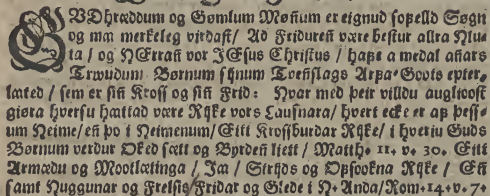 GVDhræddum og Gømlum Møñum er eignud sopello Søgn
og maa merkeleg virdast/ Ad Fridureñ være bestur allra Hlu-
ta / og HErrañ vor JEsus Christus / hafe a medal añars
Trwudum Børnum sijnum Tveñslags Arpa-Goots epter-
lated / sem er siñ Kross og siñ Frid: Hvar med þeir villdu augliooст
giøra hversu hattad være Rijke vors Lausnara/ hvert ecke er af þess-
um Heime/ eñ þo i Heimenum/ Eitt Krossburdar Rijke/ i hveriu Guds
Børnum verdur Oked sætt og Byrdeñ liett / Matth. 11. v. 30. Eitt
Armædu og Mootlætinga / Ja / Strijds og Ofsookna Rijke / Eñ
samt Huggunar og Frelsis/ Fridar og Glede i H. Anda/ Rom. 14. v. 7.